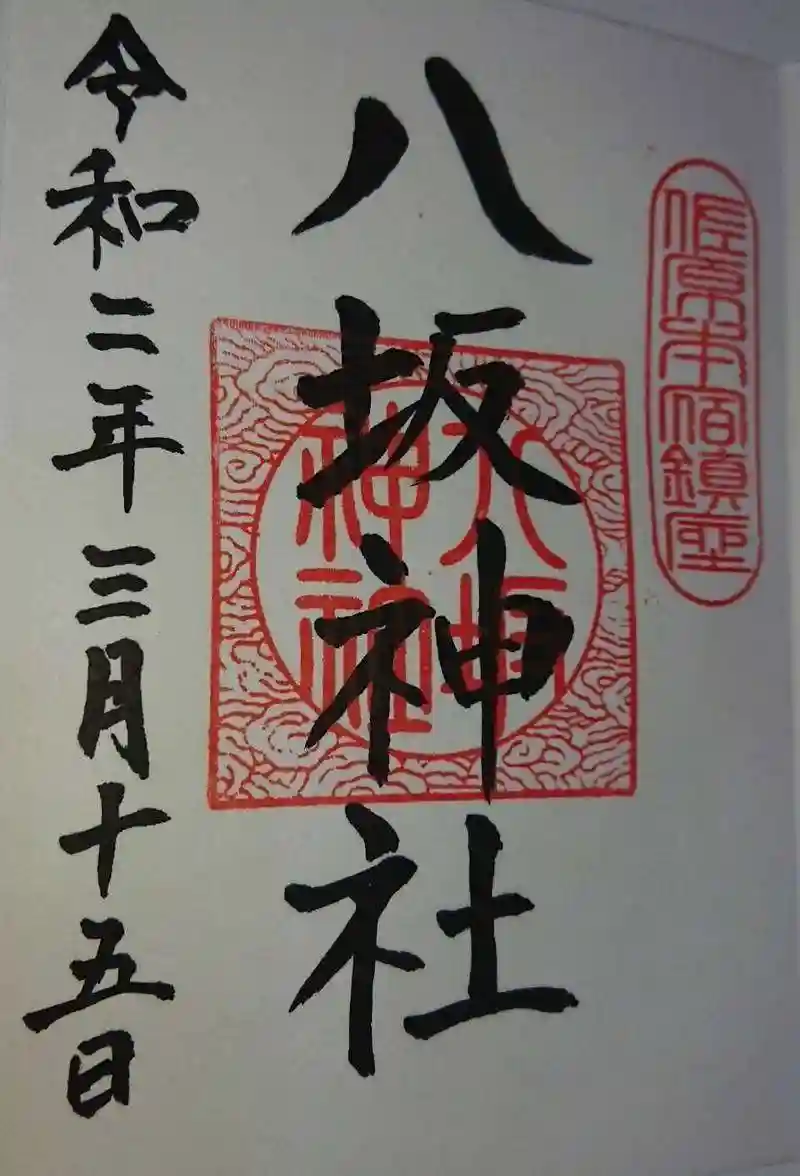 佐原本宿鎮座
八坂神社
八坂
神社
令和二年三月十五日